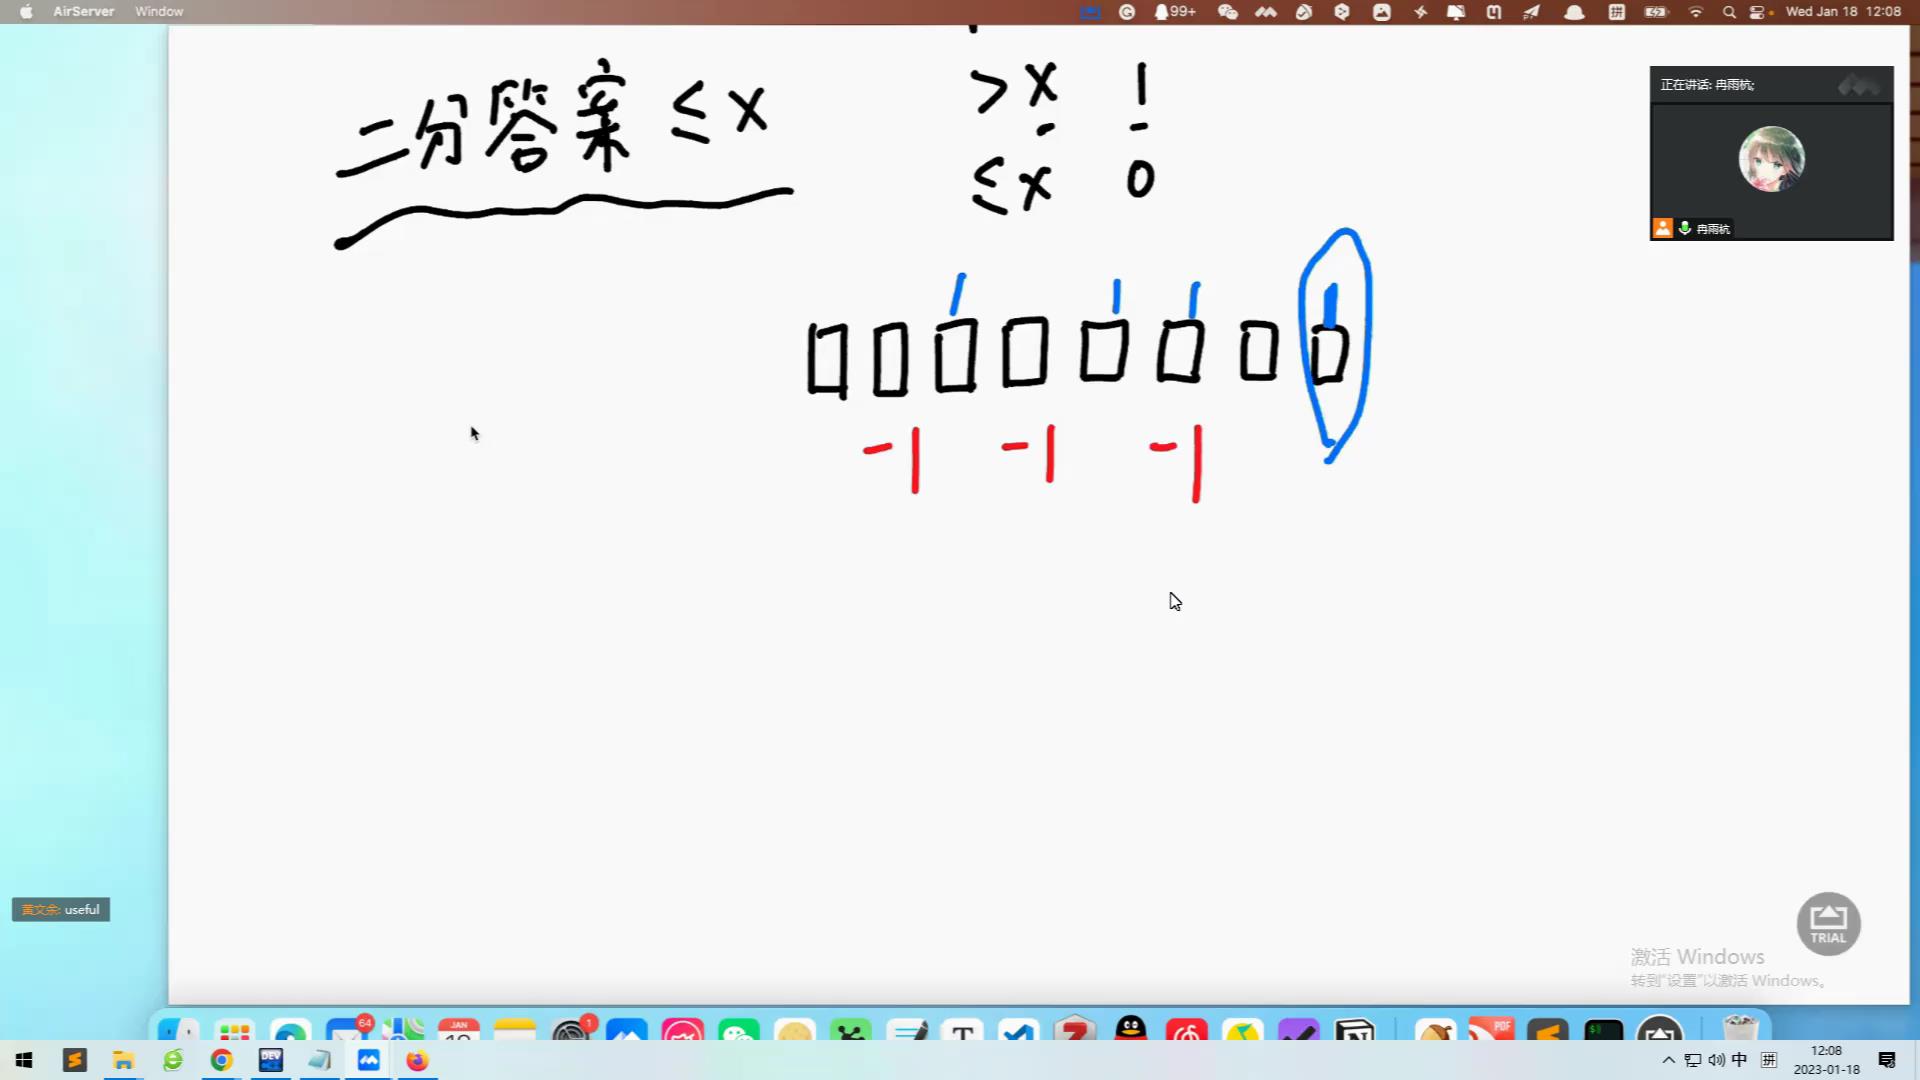 AirServer Window
99+
Wed Jan 18 12:08
二分答案 ≤ x
> x 1
≤ x 0
正在讲话: 冉雨杭;
冉雨杭
-1 -1 -1
黄文余: useful
TRIAL
激活 Windows
转到“设置”以激活 Windows。
64
JAN
1
PDF
DEV
中
拼
12:08
2023-01-18